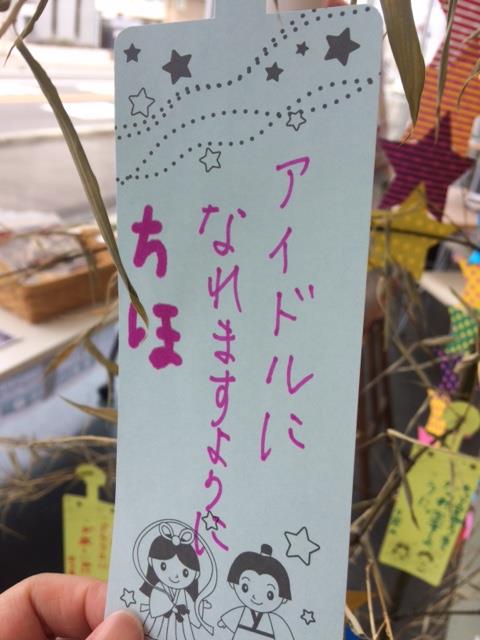 アイドルに
なれますように
ちほ